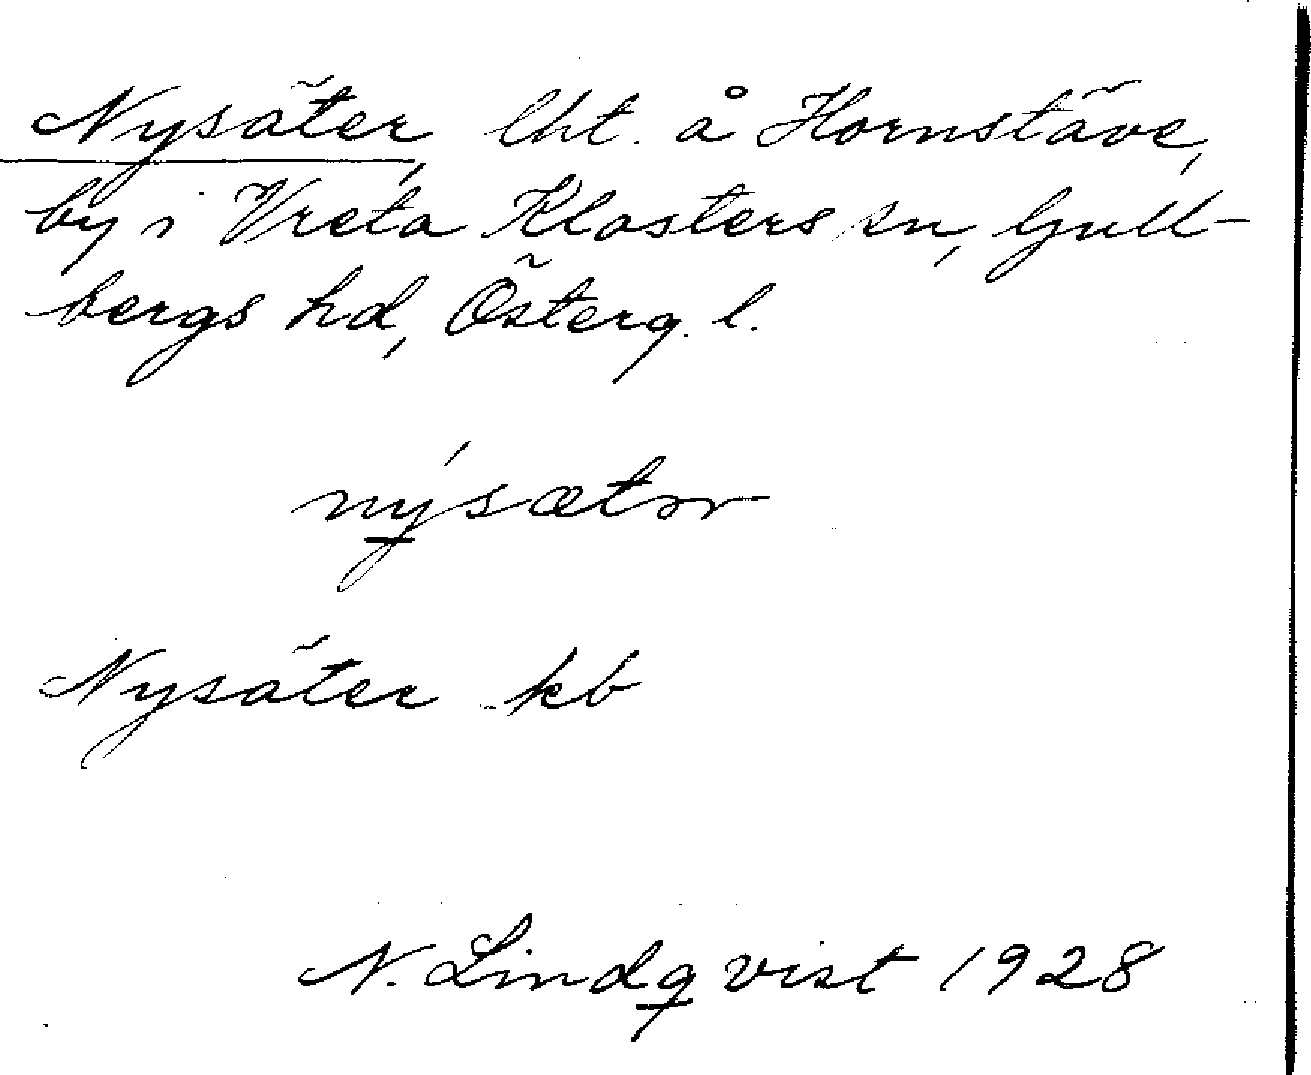 Nysäter, lht. å Hornstäve,
by i Vreta Klosters sn, Gull-
bergs hd, Österg. l.
nýsætər
Nysäter kb
N. Lindqvist 1928